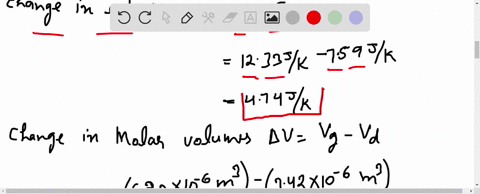 Change in
= 12.33J/K - 7.59J/K
= 4.74J/K
Change in Molar volumes ΔV = Vg - Vd
×10-6 m3) - (3.42×10-6 m3)